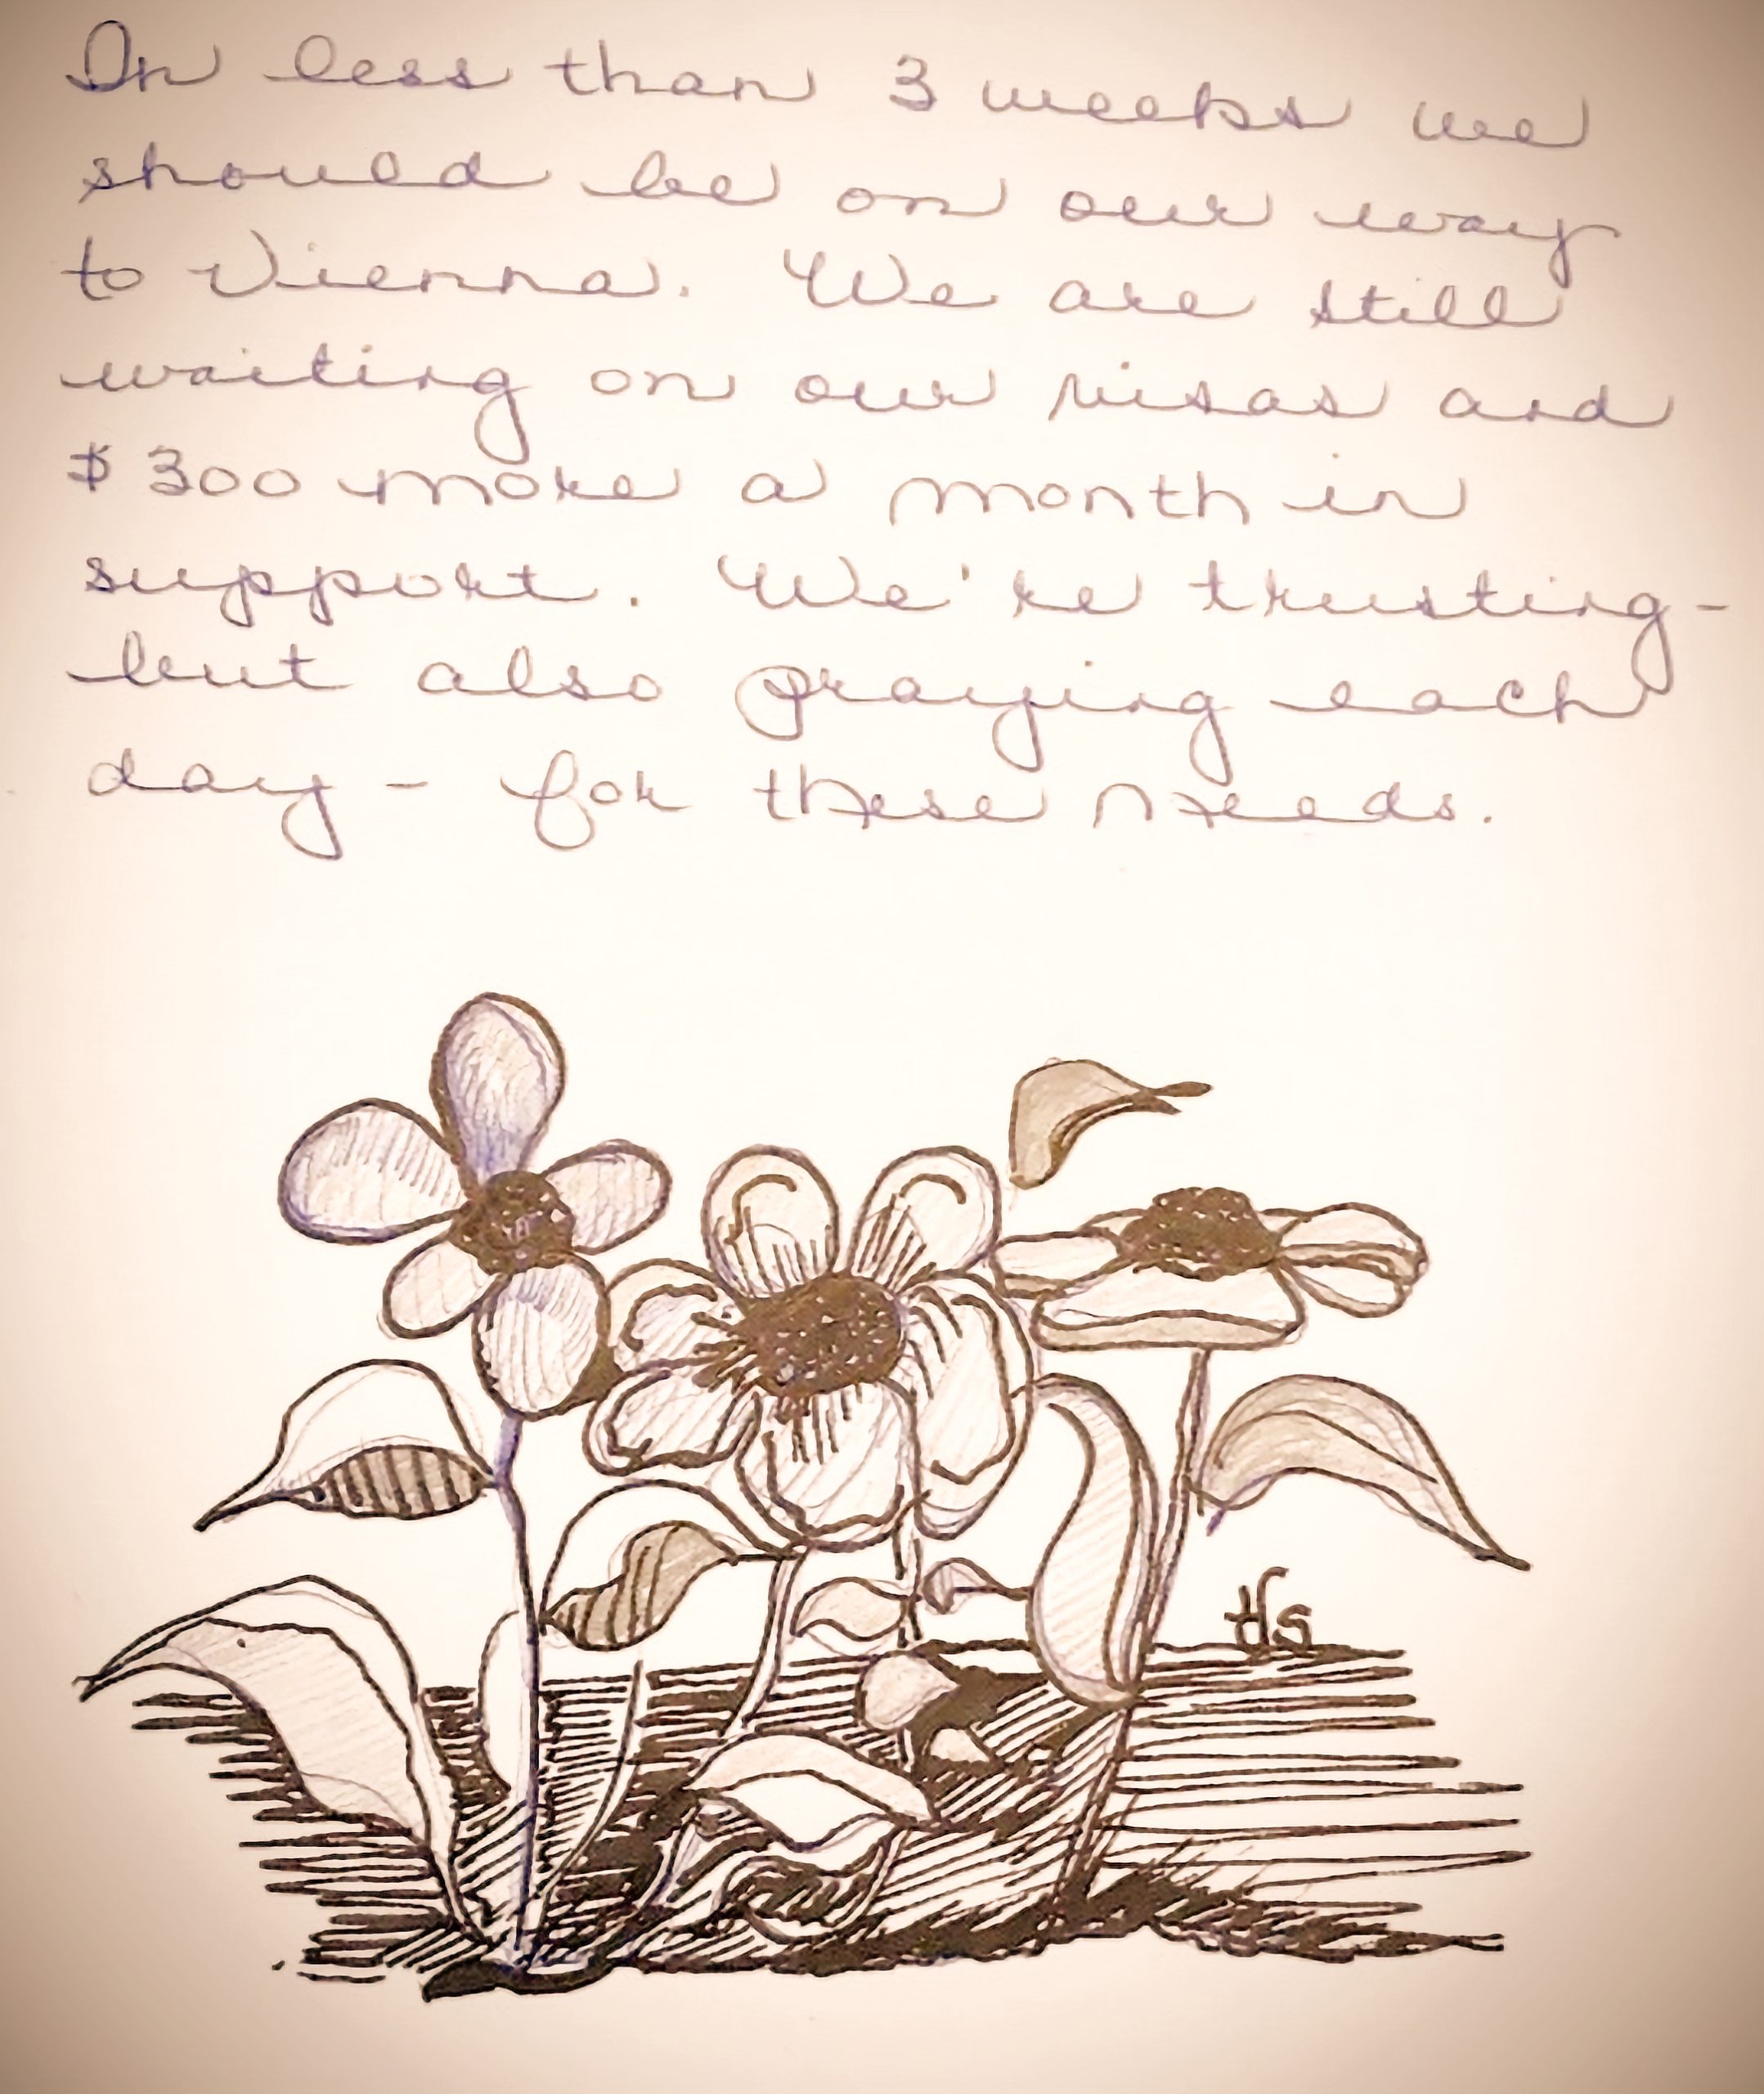 In less than 3 weeks we
should be on our way
to Vienna. We are still
waiting on our visas and
$300 more a month in
support. We're trusting-
but also praying each
day - for these needs.
HS